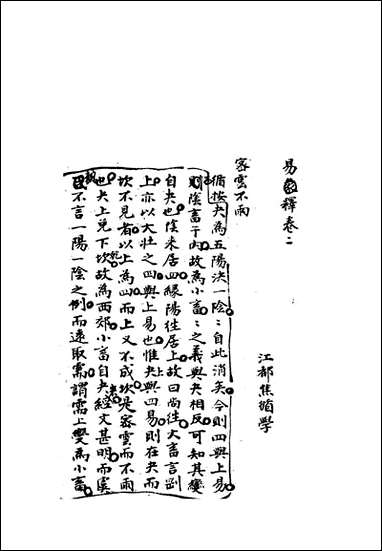 易釋卷二
江都焦循學
密雲不雨
循按夬為五陽決一陰：自此消矣今則四與上易
則陰畜于內故為小畜：之義與夬相反可知其變
自夬也陰來居四緣陽往居上故曰尚往大畜言剛
上亦以大壯之四與上易也惟夬與四易則在夬而
坎不見者以上為四而上又不成坎是密雲而不雨
也夬上兌下坎故為西郊小畜自夬經文甚明而虞
不言一陽一陰之例而遠取需謂需上變為小畜